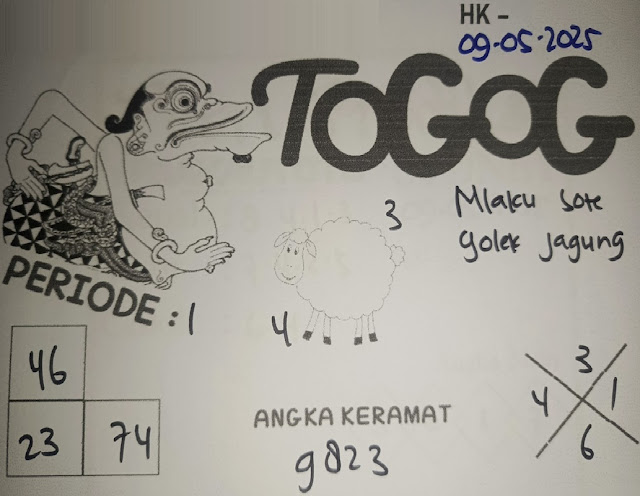 HK -
09-05-2025
TOGOG
Mlaku sore
golek jagung
3
4
PERIODE : 1
46
23 74
ANGKA KERAMAT
9823
3
4 1
6